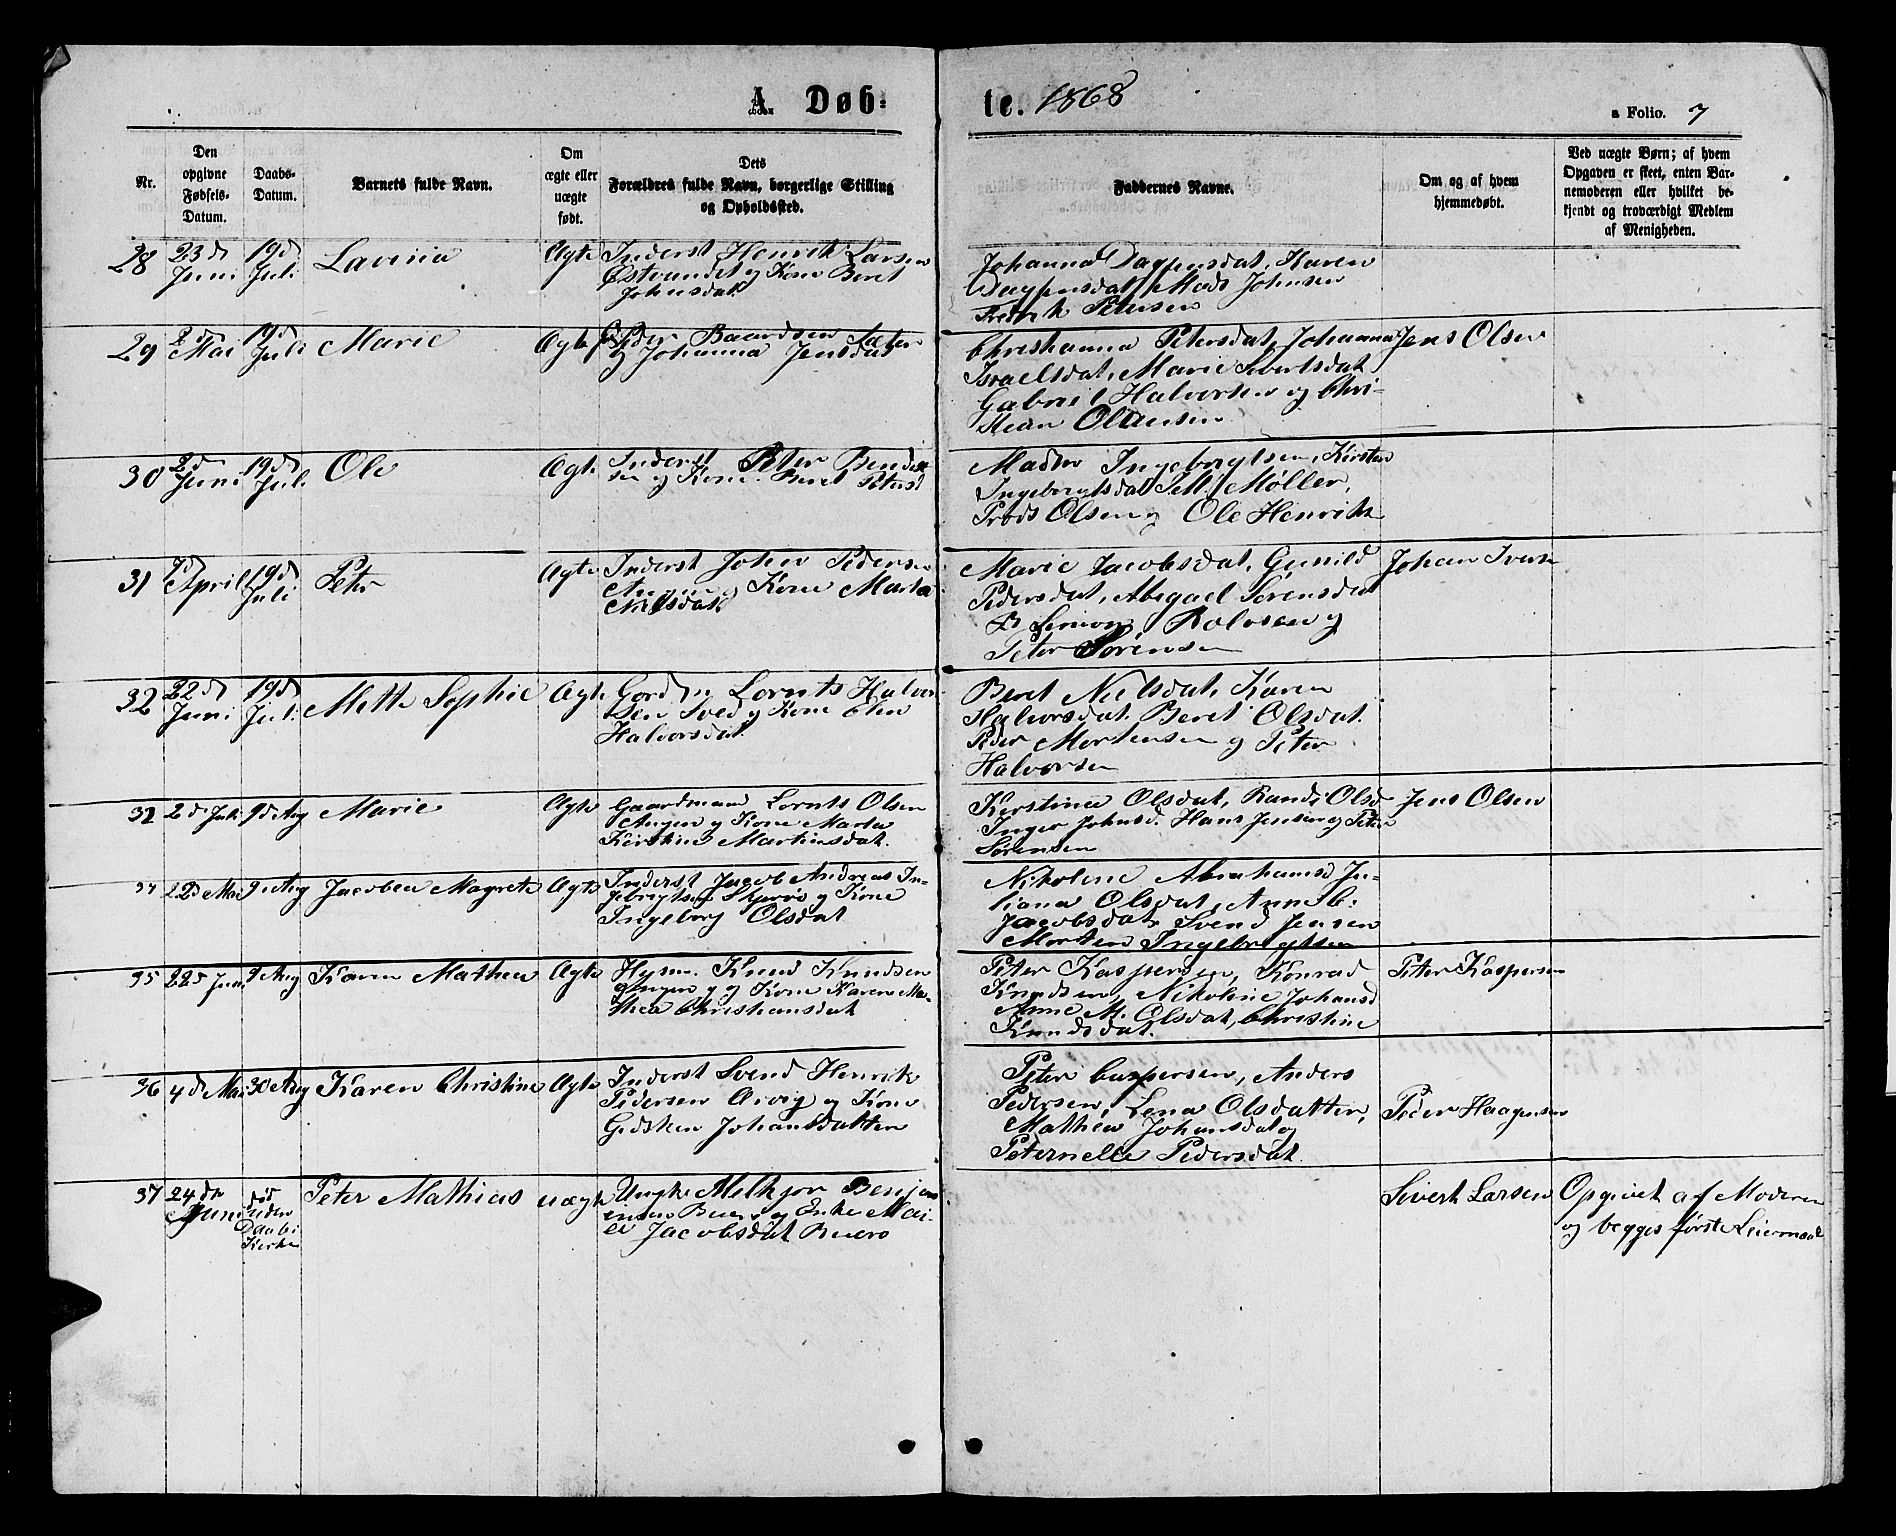 A. Døb=
te. 1868
a Folio. 7
Nr.
Den
opgivne
Fødsels-
Datum.
Daabs-
Datum.
Barnets fulde Navn.
Om
ægte eller
uægte
født.
Dets
Forældres fulde Navn, borgerlige Stilling
og Opholdssted.
Faddernes Navne.
Om og af hvem
hjemmedøbt.
Ved uægte Børn; af hvem
Opgaven er skeet, enten Bar-
nemoderen eller hvilket be-
kjendt og troværdigt Medlem
af Menigheden.
28
23d
Juni
19d
Juli
Lavina
Ægte
Inderst Henrik Larsen
og Kone Beret
Johnsdat
Johanna Haven
Mads Johnsen
Fredrik Petersen
29
Mai
19d
Juli
Marie
Ægte
Peder Baardsen Sæter
og Johanna Jensdat
Christianna Petersdat, Johanna
Israelsdat, Marie Sivertsdat
Gabriel Halvorsen og Chri-
stian Olausen
Jens Olsen
30
2d
Juni
19d
Juli
Ole
Ægte
Inderst Peter Bendik
sen og Kone Beret Petersd
Ingebrigtsen, Kirsten
Ingebrigtsdat Møller,
Olsen og Ole Henrik
31
7d
April
19d
Juli
Peter
Ægte
Inderst John Pedersen
Kone Marta
Nilsdat
Marie Jacobsdat, Gunild
Pedersdat, Abegael Sørensdat
Simon Rolvsen og
Peter Sørensen
Johan Iversen
32
22d
Juni
19d
Juli
Mette Sophie
Ægte
Gordm Lornts Halvor
sen Sved og Kone Elen
Halvorsdat
Beret Nielsdat, Karen
Halvorsdat. Beret Olsdat.
Peder Mortensen og Peter
Halvorsen
32
2d Juli
9d Aug
Marie
Ægte
Gaardmand Lornts Olsen
Angen og Kone Marta
Kirstine Martinsdat.
Kerstina Olsdat, Randi Olsd
Inger Johnsd. Hans Jensen og Peter
Sørensen
Jens Olsen
22d Mai
9d Aug
Jacobea Magrete
Ægte
Inderst Jacob Andreas In-
gebrigtsen og Kone
Ingeborg Olsdat
Nikoline Abrahamsd Ju-
liana Olsdat, Anne C.
Jacobsdat, Svend Jensen
Morten Ingebrigtsen
35
22d Juni
9 Aug
Karen Mathea
Ægte
Hysm. Knud Knudsen
og Kone Karen Ma-
thea Christiansdat
Peter Kaspersen, Konrad
Knudsen, Nikoline Johansd
Anne M. Olsdat, Christine
Knudsdat.
Peter Kaspersen
36
4d Mai
30 Aug
Karen Christine
Ægte
Inderst Svend Henrik
Pedersen Aivig og Kone
Gidsken Johansdatter
Peter Caspersen, Anders
Pedersen, Lena Olsdatter,
Mathea Johansdat og
Peternelle Pedersdat.
Peder Haagensen
37
24de
Juni
død
uden
Daab i
Kirke
Peter Mathias
uægte
Ungk Melkjor Benja
minsen og Enke Mar-
Jacobsdat
Sivert Larsen
Opgivet af Moderen
og begges første Leiermaal